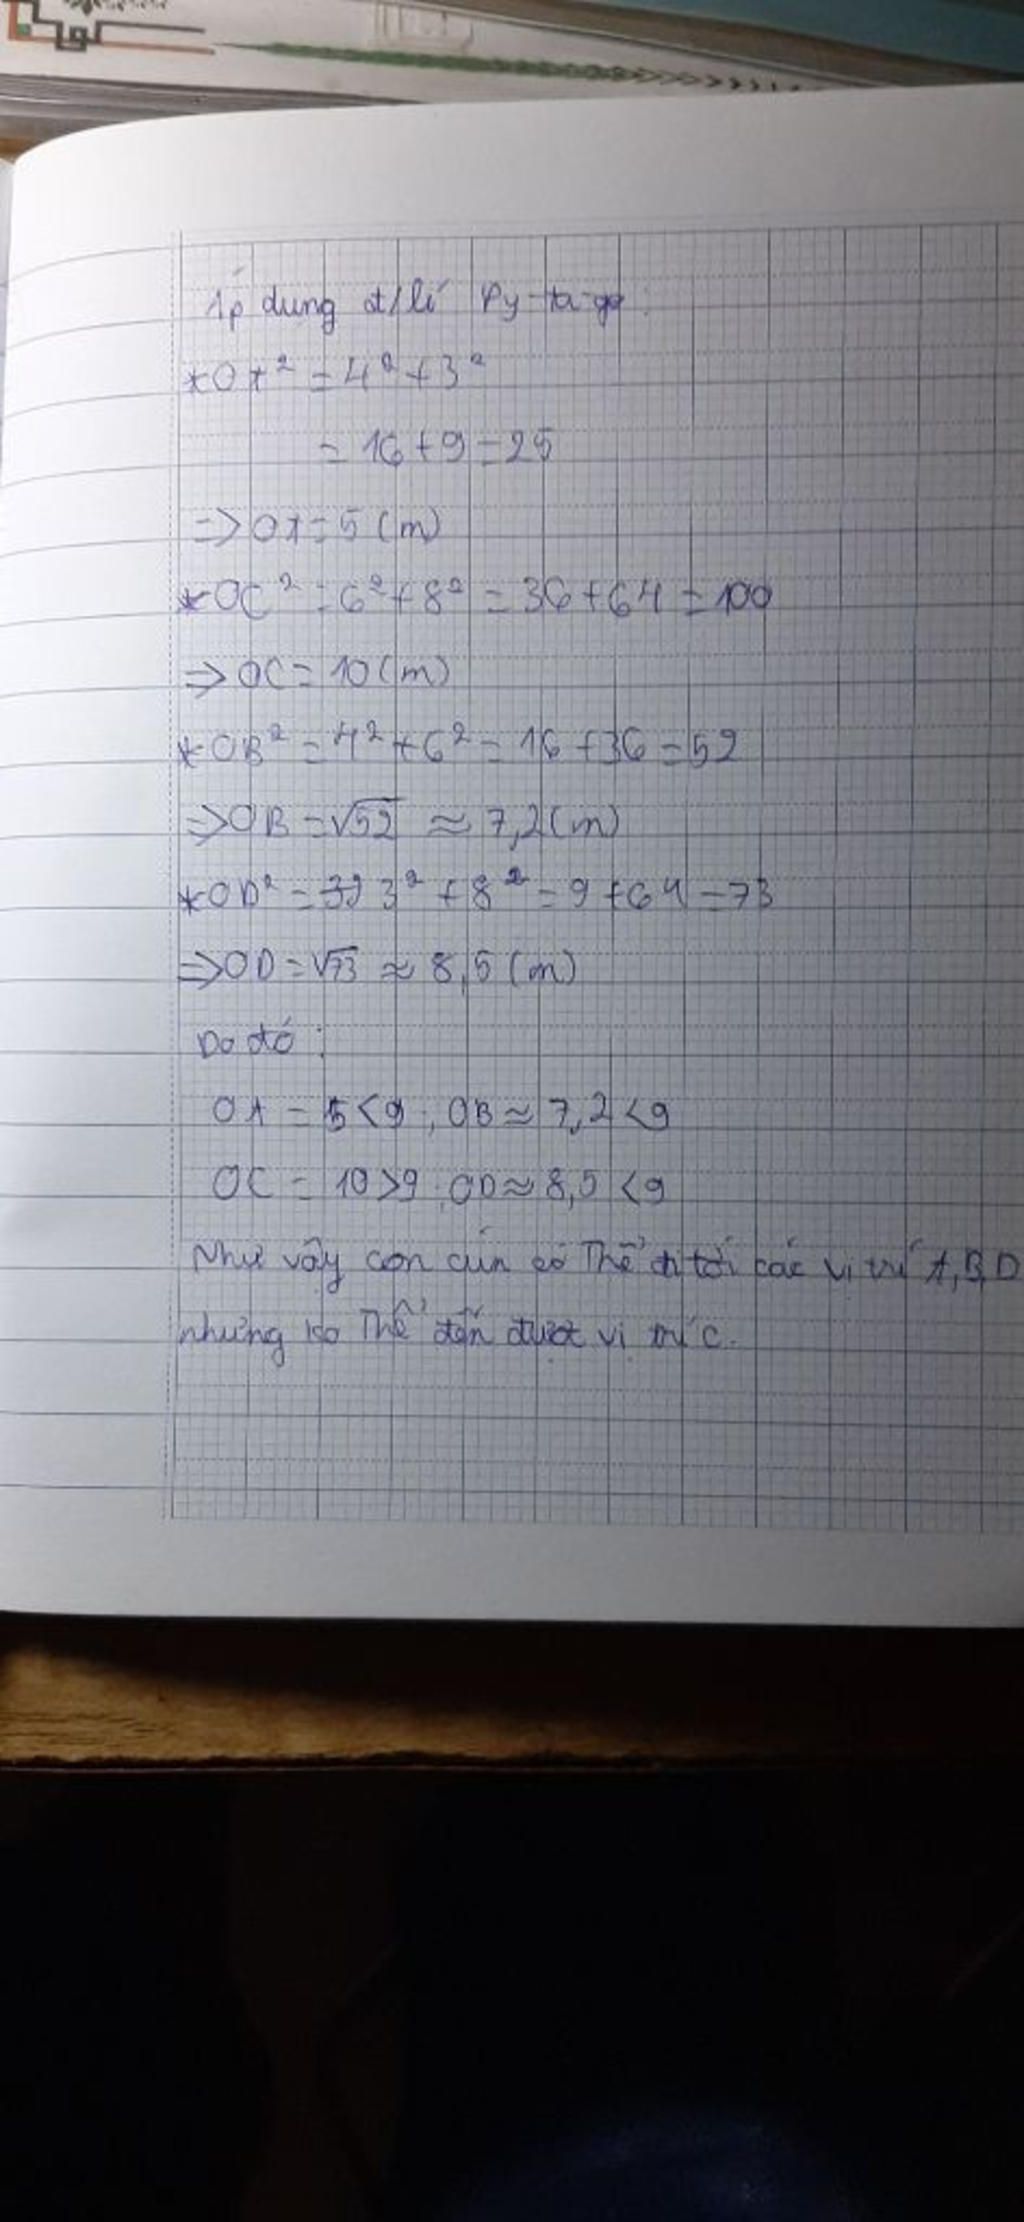 Áp dung đ/lí Py-ta-go:
*OA² = 4² + 3²
= 16 + 9 = 25
=> OA = 5 (m)
*OC² = 6² + 8² = 36 + 64 = 100
=> OC = 10 (m)
*OB² = 4² + 6² = 16 + 36 = 52
=> OB = √52 ≈ 7,2 (m)
*OD² = 3² + 8² = 9 + 64 = 73
=> OD = √73 ≈ 8,5 (m)
Do đó:
OA = 5 < 9; OB ≈ 7,2 < 9
OC = 10 > 9; OD ≈ 8,5 < 9
Như vậy con cún có thể tới các vị trí A, B, D
nhưng ko thể đến được vị trí C.